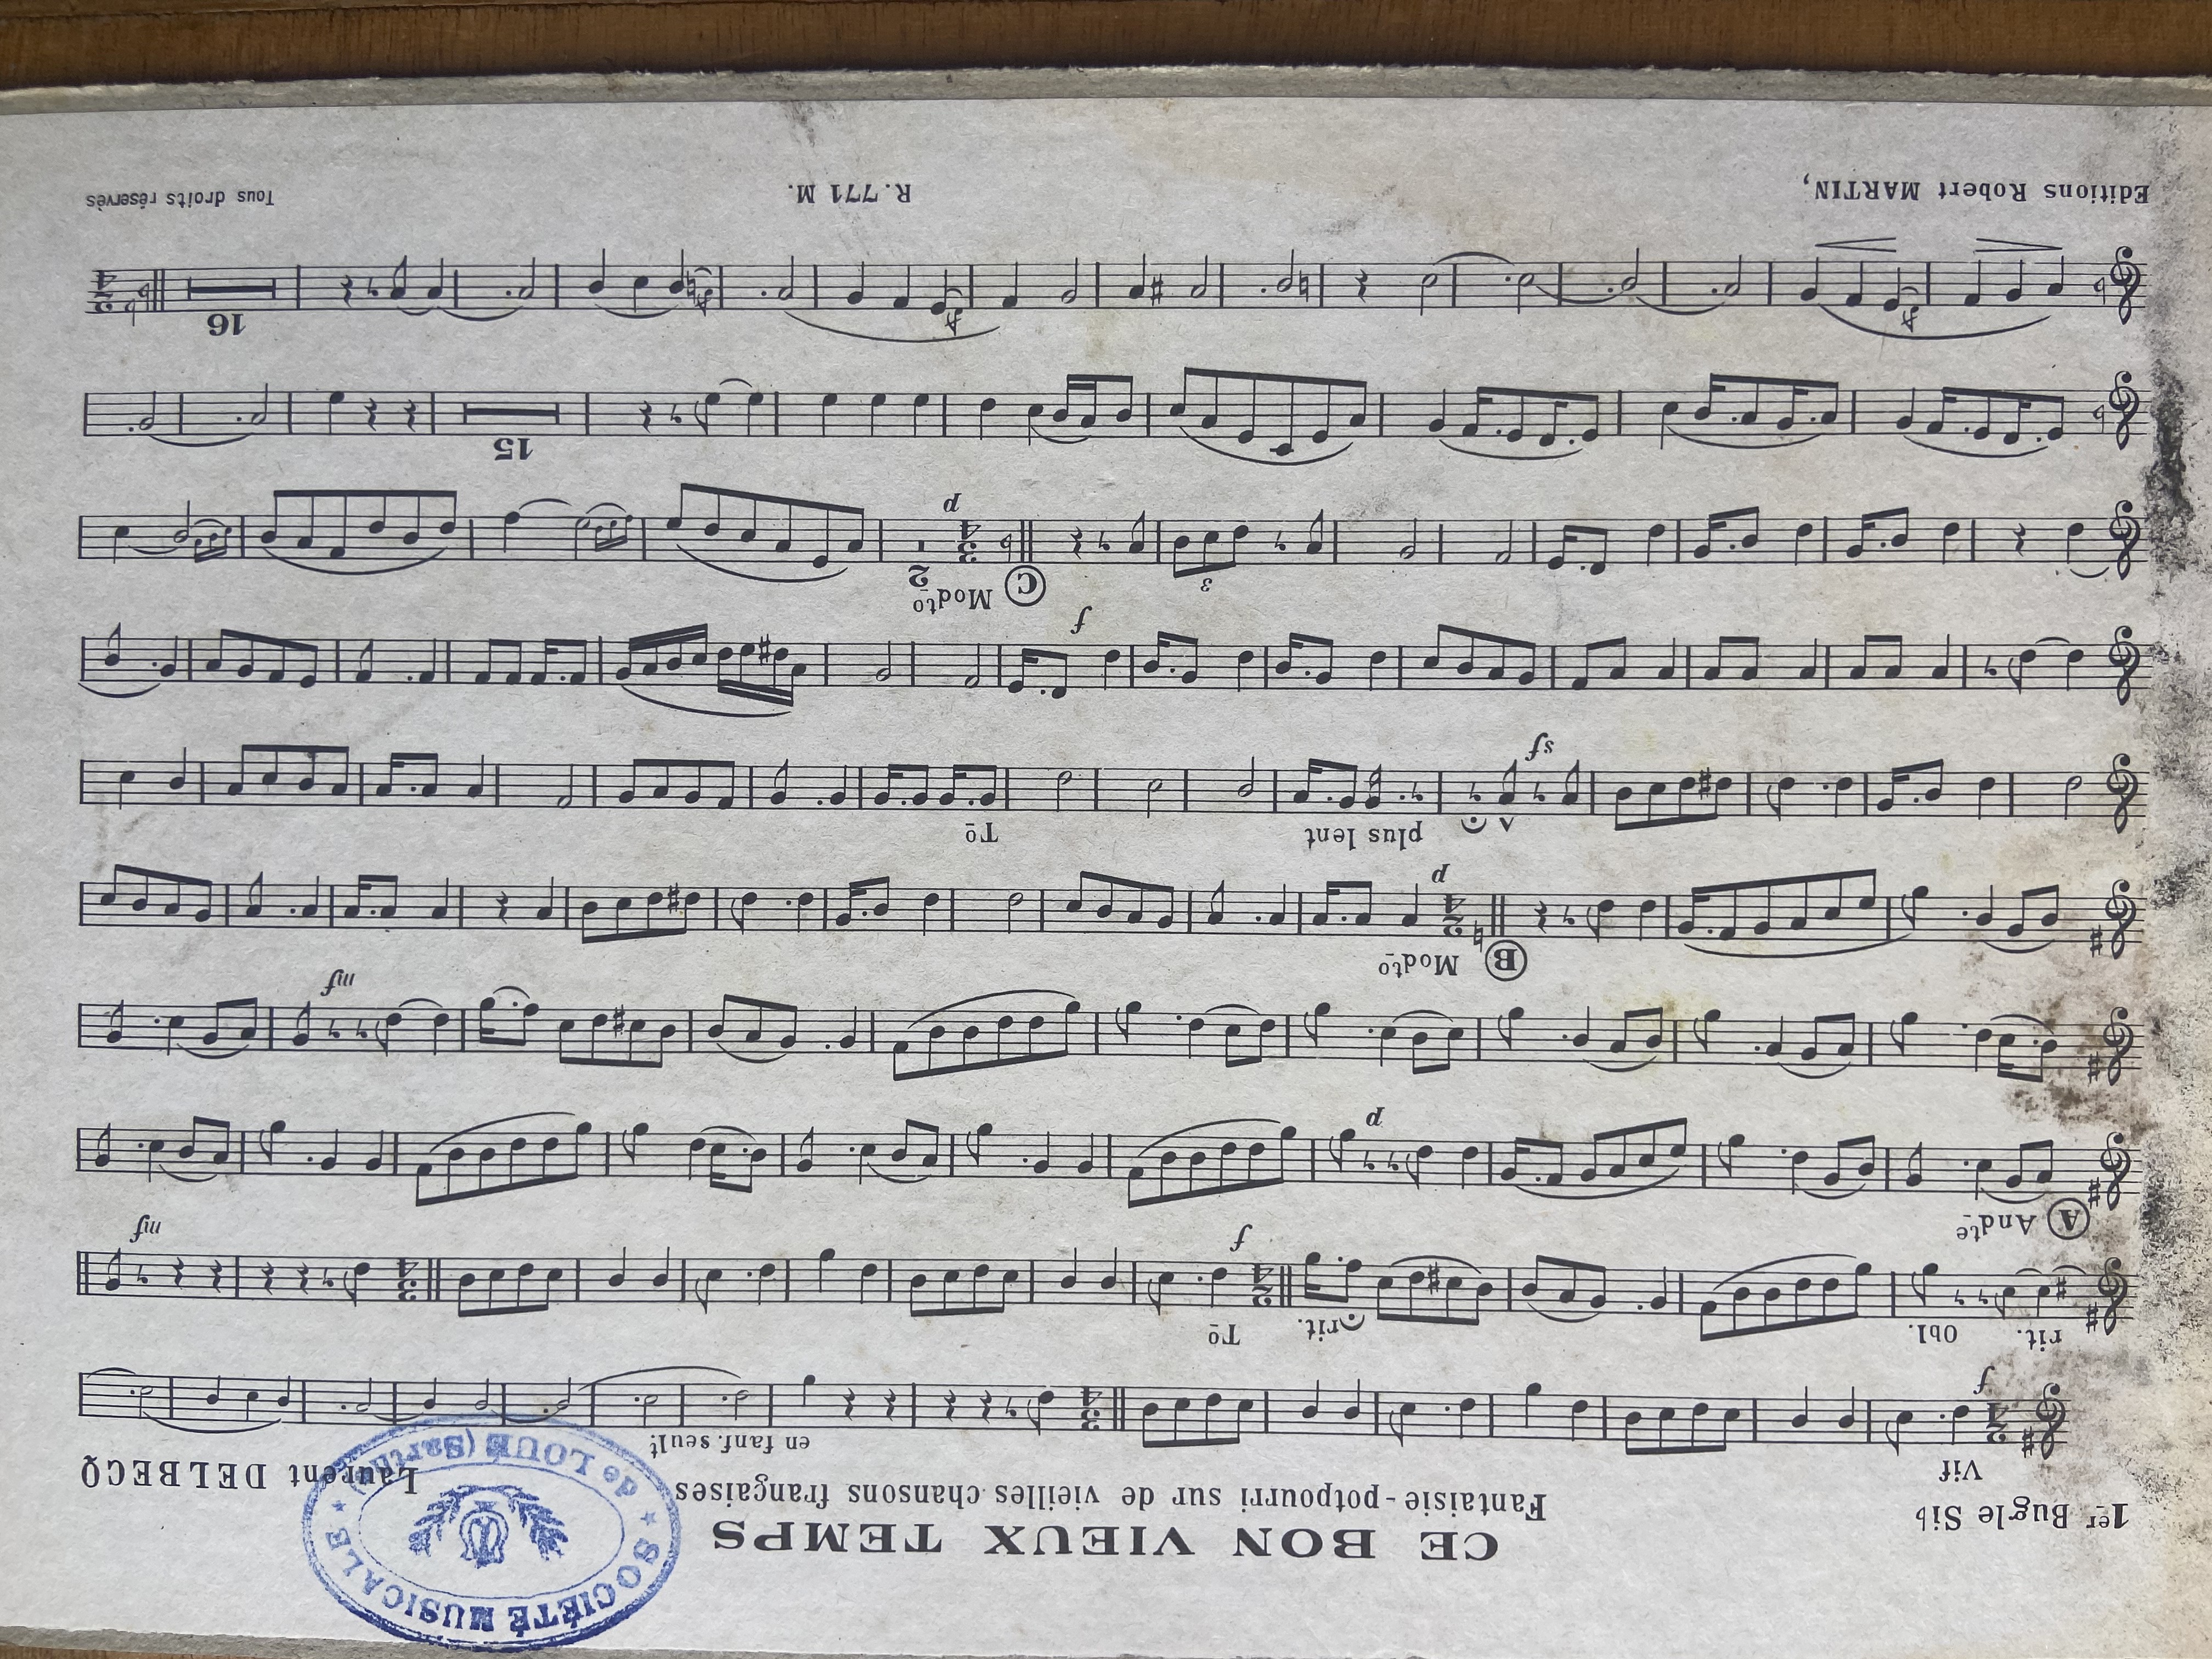 CE BON VIEUX TEMPS
1er Bugle Sib
Fantaisie-potpourri sur de vieilles chansons françaises
Laurent DELBECQ
SOCIÉTÉ MUSICALE
de LOUÉ (Sarthe)
Vif
en fanf. seult
f
rit.
Obl.
rit.
To
f
mf
A Andte
p
mf
B Modto
p
plus lent
To
sf
f
C Modto
2
3
p
15
16
Editions Robert MARTIN,
R. 771 M.
Tous droits réservés